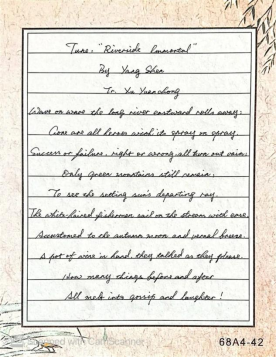 Tune: "Riverside Immortal"
By Yang Shen
Tr. Xu Yuanchong
Wave on wave the long river eastward rolls away;
Gone are all heroes with its spray on spray.
Success or failure, right or wrong all turn out vain;
Only green mountains still remain,
To see the setting sun's departing ray.
The white-haired fishermen sail on the stream with ease,
Accustomed to the autumn moon and vernal breeze.
A pot of wine in hand, they talked as they please.
How many things before and after
All melt into gossip and laughter!
Scanned with CamScanner
68A4-42